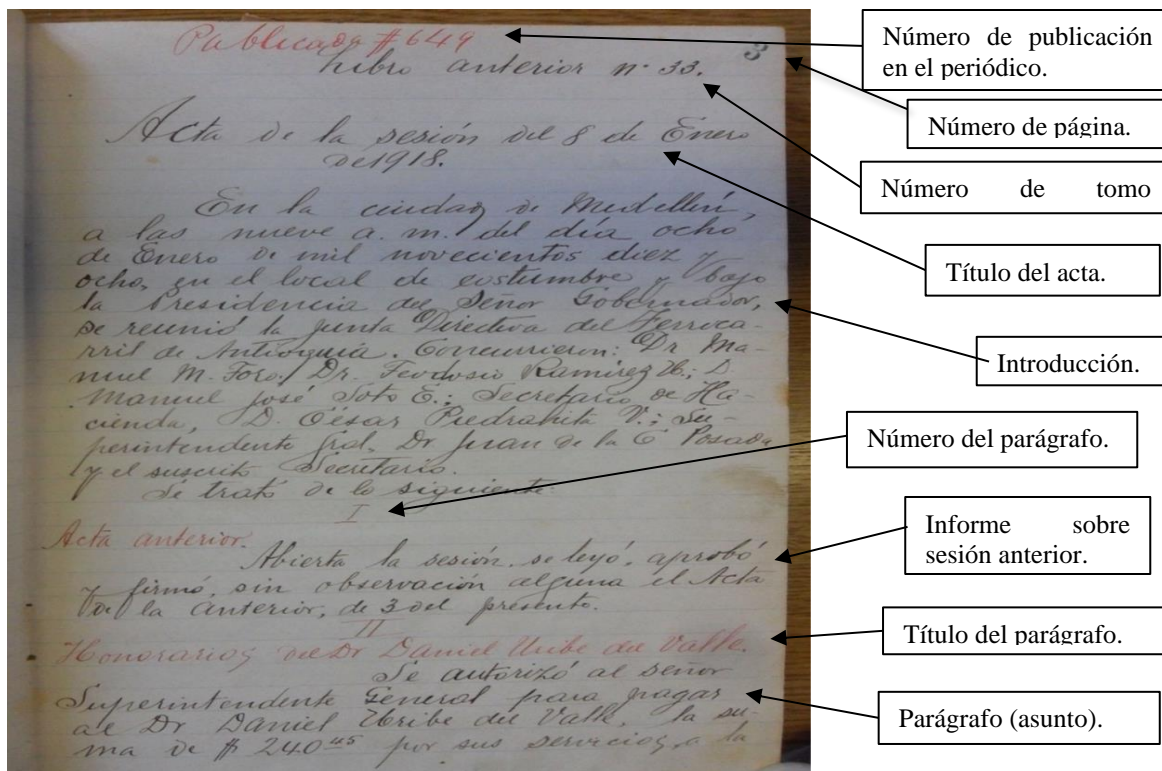 Publicada #649
3
Libro anterior nº 33.
Acta de la sesión del 8 de Enero
de 1918.
En la ciudad de Medellín,
a las nueve a. m. del día ocho
de Enero de mil novecientos diez y
ocho, en el local de costumbre y bajo
la Presidencia del Señor Gobernador,
se reunió la Junta Directiva del Ferroca-
rril de Antioquia. Concurrieron: Dr Ma-
nuel M. Toro; Dr. Teodosio Ramírez U.; D.
Manuel José Soto E.; Secretario de Ha-
cienda, D. César Piedrahita V.; Su-
perintendente gral, Dr Juan de la C Posada
y el suscrito Secretario.
Se trató de lo siguiente:
I
Acta anterior.
Abierta la sesión, se leyó, aprobó
y firmó, sin observación alguna el Acta
de la anterior, de 3 del presente.
II
Honorarios del Dr Daniel Uribe del Valle.
Se autorizó al señor
Superintendente General para pagar
al Dr Daniel Uribe del Valle, la su-
ma de $ 240.45 por sus servicios, a la
Número de publicación
en el periódico.
Número de página.
Número de tomo
Título del acta.
Introducción.
Número del parágrafo.
Informe sobre
sesión anterior.
Título del parágrafo.
Parágrafo (asunto).